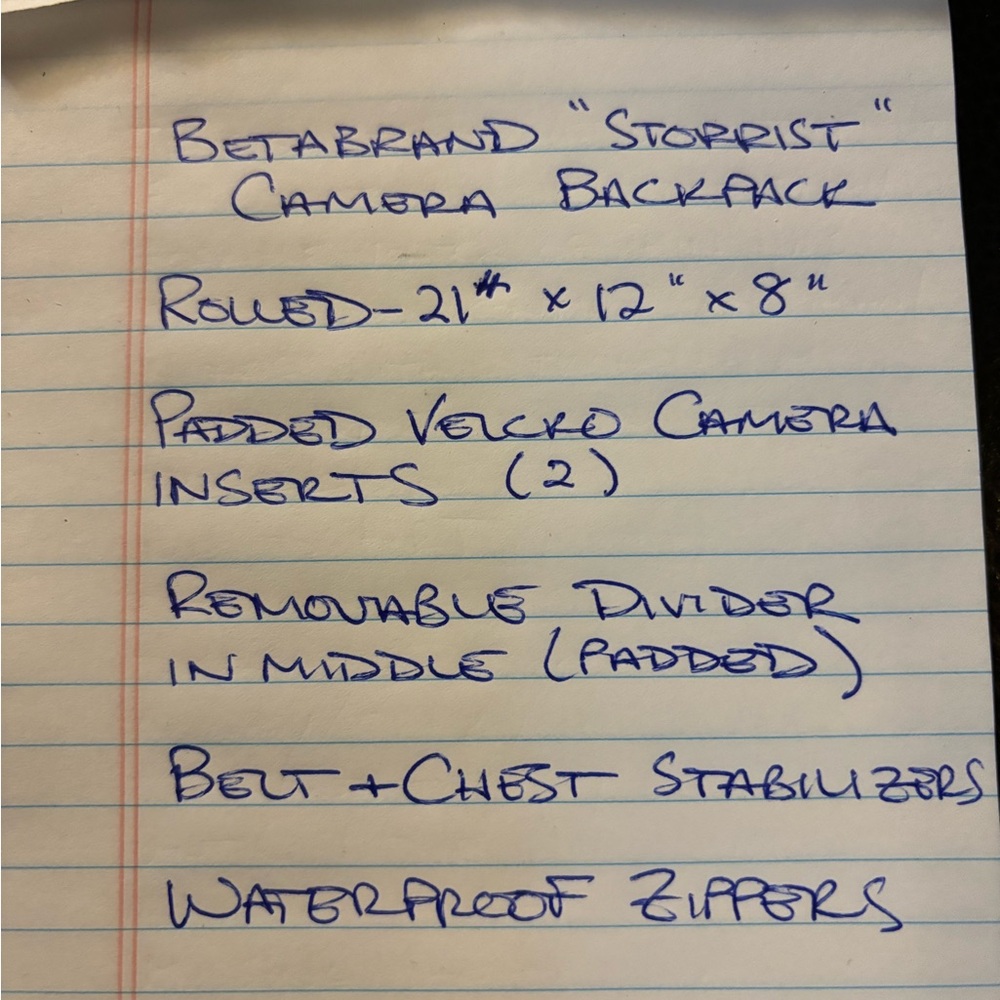 BETABRAND "STORRIST"
CAMERA BACKPACK
ROLLED - 21" x 12" x 8"
PADDED VELCRO CAMERA
INSERTS (2)
REMOVABLE DIVIDER
IN MIDDLE (PADDED)
BELT + CHEST STABILIZERS
WATERPROOF ZIPPERS